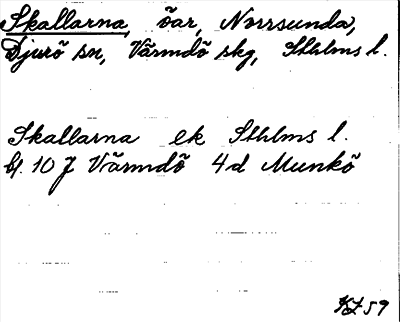 Skallarna, öar, Norrsunda,
Djurö sn, Värmdö skg, Sthlms l.
Skallarna ek Sthlms l.
bl. 10 J Värmdö 4d Munkö
KZ 59